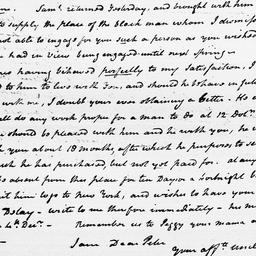 Sam: returned Yesterday, and brought with him
to supply the place of the black man whom I dismiss
not able to engage for you such a person as you wished
had in view being engaged until next spring—
having behaved perfectly to my Satisfaction, I
to him to live with you, and should he behave in full
with me, I doubt your ever obtaining a better. He
all do any work proper for a man to do at 12 Dolrs
should be pleased with him and he with you, he
you about 18 months, after which he purposes to
he has purchased, but not yet paid for. at any
absent from this place for ten Days or a fortnight
him to go to New York, and wishes to have your
Delay. write to me therefore immediately — his
4th Decr. — Remember us to Peggy your mama
I am Dear Peter
Your afft. Uncle